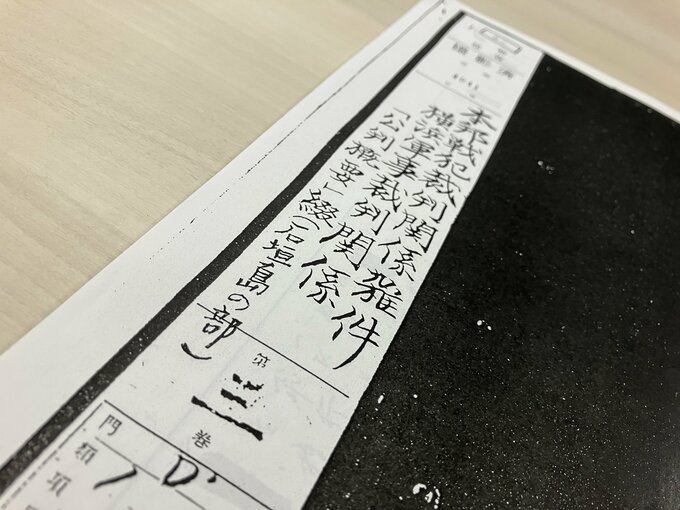 本邦戦犯裁判関係雑件
横浜軍事裁判関係
「公判概要」綴(石垣島の部)
第三巻
門
D'
類
1
項